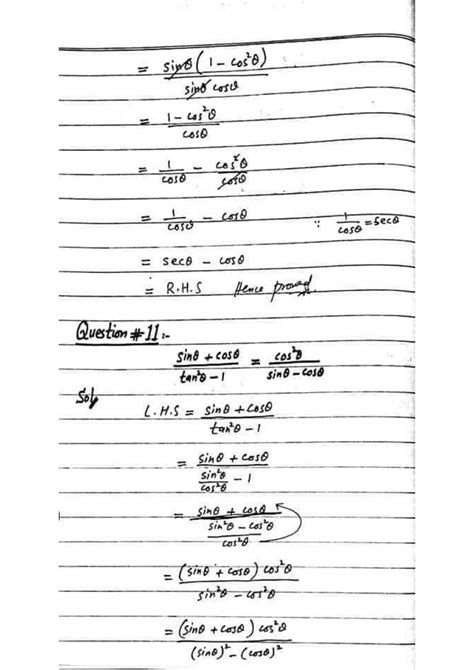 = sinθ(1 − cos²θ) / sinθ cosθ
= 1 − cos²θ / cosθ
= 1/cosθ − cos²θ/cosθ
= 1/cosθ − cosθ ∵ 1/cosθ = secθ
= secθ − cosθ
= R.H.S Hence proved.
Question # 11:-
sinθ + cosθ / tan²θ − 1 = cos²θ / sinθ − cosθ
Sol,
L.H.S = sinθ + cosθ / tan²θ − 1
= sinθ + cosθ / sin²θ/cos²θ − 1
= sinθ + cosθ / sin²θ − cos²θ / cos²θ
= (sinθ + cosθ) cos²θ / sin²θ − cos²θ
= (sinθ + cosθ) cos²θ / (sinθ)² − (cosθ)²